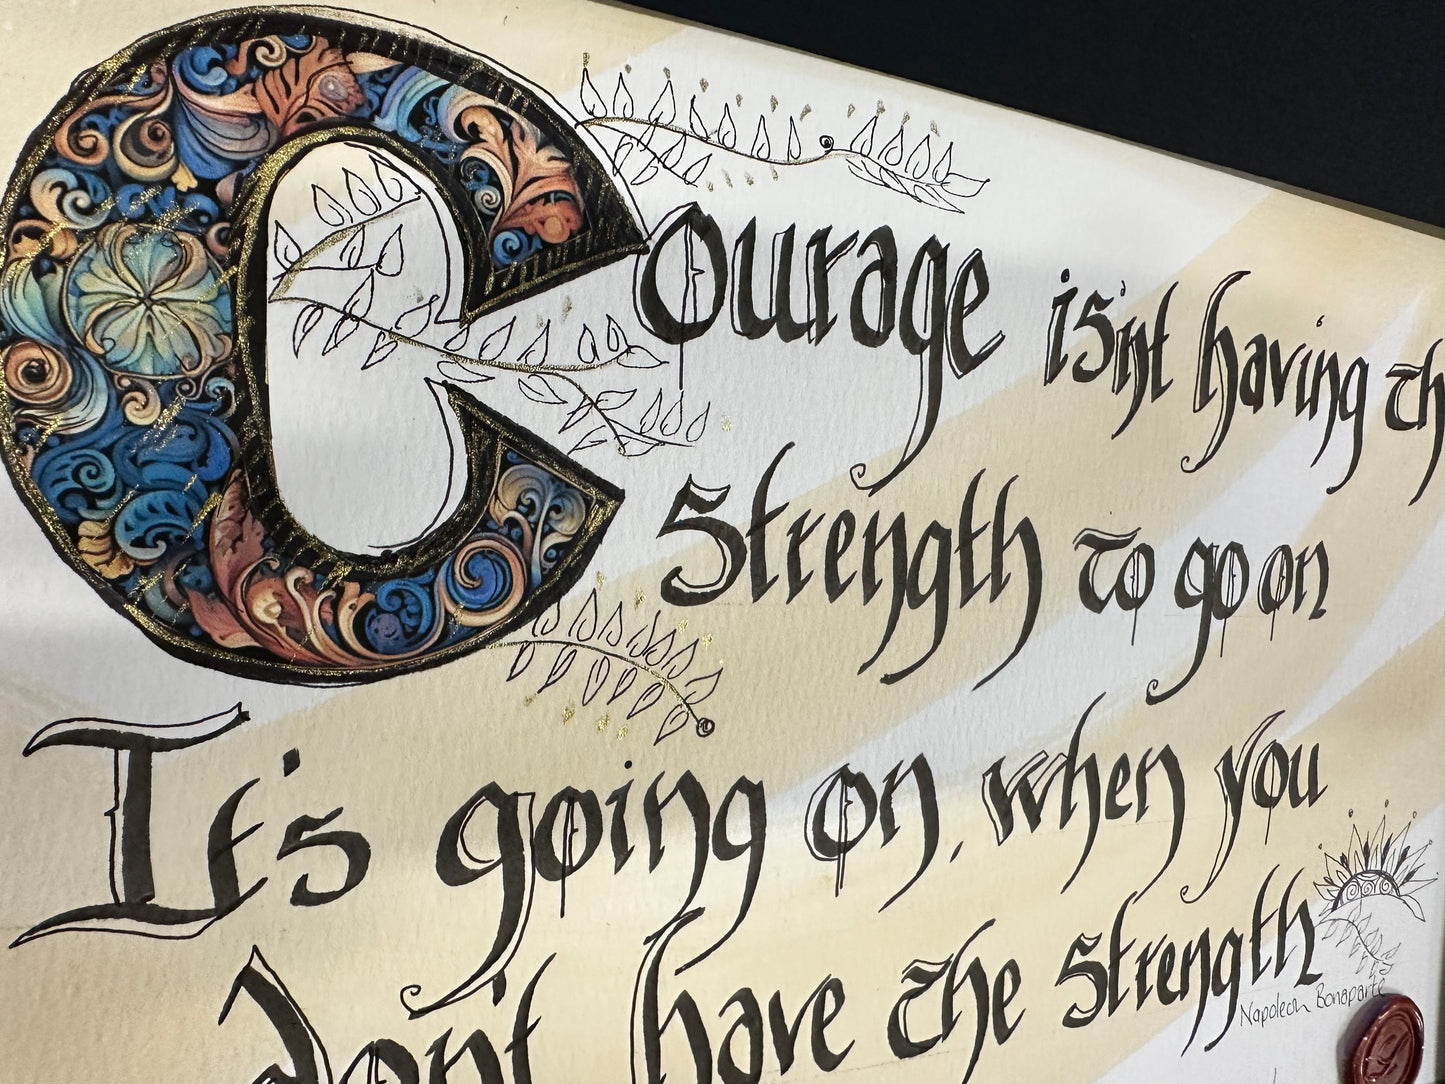 Courage isn't having th
Strength to go on
It's going on, when you
don't have the strength
Napoleon Bonaparte